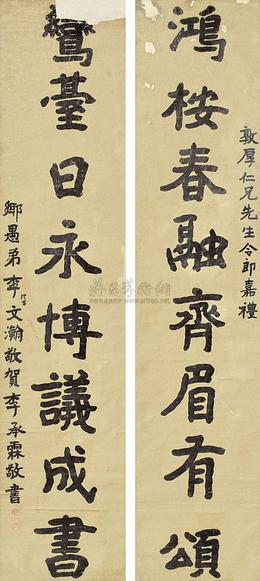 敦厚仁兄先生令郎嘉禮
鴻桉春融齊眉有頌
鸞臺日永博議成書
鄉愚弟李文瀚敬賀李承霖敬書